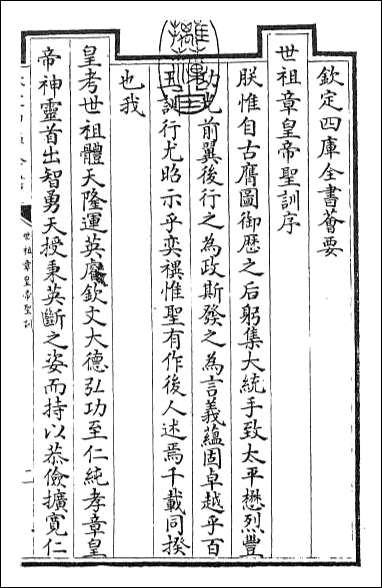 欽定四庫全書薈要
世祖章皇帝聖訓序
朕惟自古膺圖御歴之后躬集大統手致太平懋烈豐
功光前翼後行之為政斯發之為言義蘊固卓越乎百
王訓行尤昭示乎奕禩惟聖有作後人述焉千載同揆
也我
皇考世祖體天隆運英睿欽文大德弘功至仁純孝章皇
帝神靈首出智勇天授秉英斷之姿而持以恭儉擴寛仁
世祖章皇帝聖訓